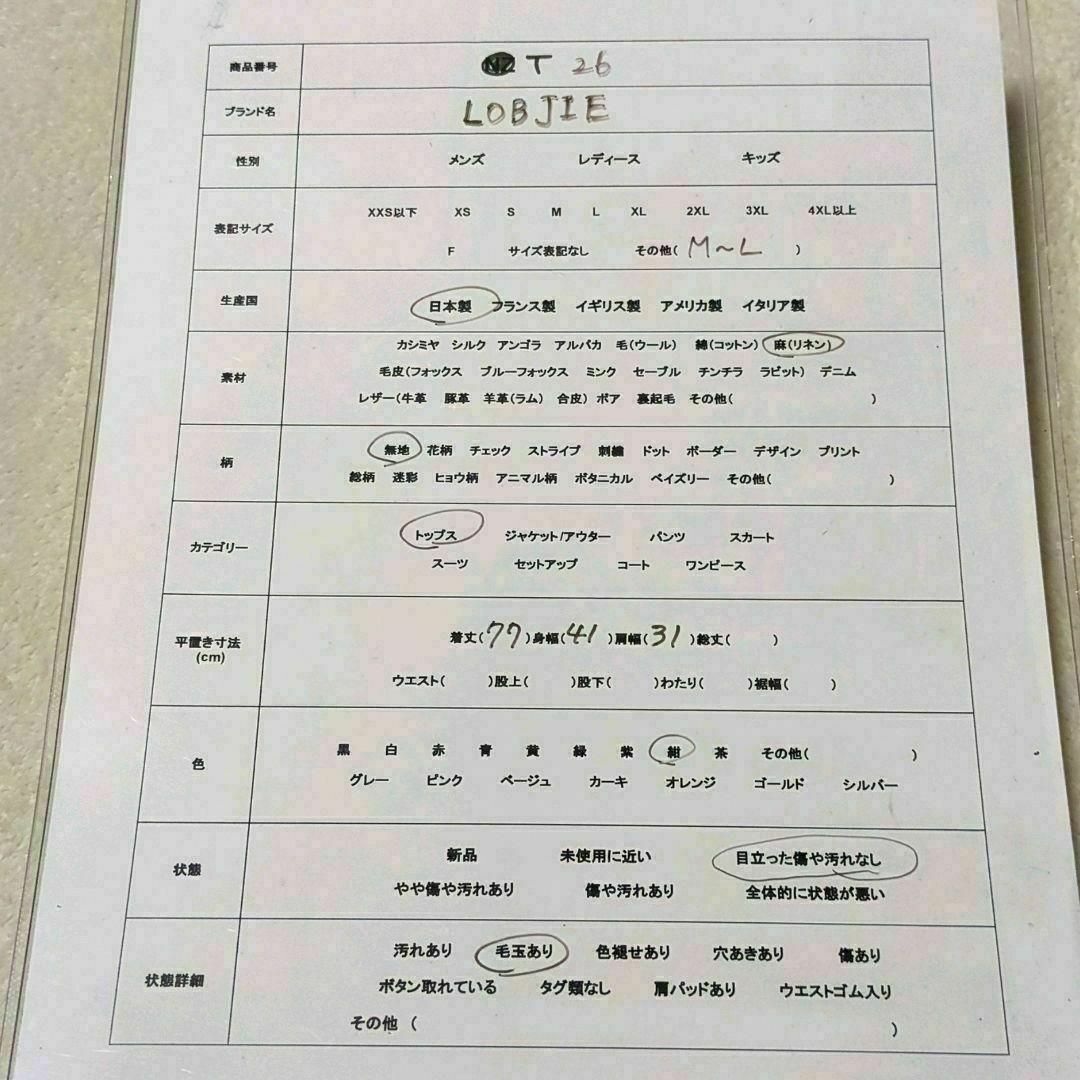 商品番号 MZ T 26
ブランド名 LOBJIE
性別 メンズ レディース キッズ
表記サイズ XXS以下 XS S M L XL 2XL 3XL 4XL以上
F サイズ表記なし その他( M～L )
生産国 日本製 フランス製 イギリス製 アメリカ製 イタリア製
素材 カシミヤ シルク アンゴラ アルパカ 毛(ウール) 綿(コットン) 麻(リネン)
毛皮(フォックス ブルーフォックス ミンク セーブル チンチラ ラビット) デニム
レザー(牛革 豚革 羊革(ラム) 合皮) ボア 裏起毛 その他( )
柄 無地 花柄 チェック ストライプ 刺繍 ドット ボーダー デザイン プリント
総柄 迷彩 ヒョウ柄 アニマル柄 ボタニカル ペイズリー その他( )
カテゴリー トップス ジャケット/アウター パンツ スカート
スーツ セットアップ コート ワンピース
平置き寸法 (cm) 着丈(77)身幅(41)肩幅(31)総丈( )
ウエスト( )股上( )股下( )わたり( )裾幅( )
色 黒 白 赤 青 黄 緑 紫 紺 茶 その他( )
グレー ピンク ベージュ カーキ オレンジ ゴールド シルバー
状態 新品 未使用に近い 目立った傷や汚れなし
やや傷や汚れあり 傷や汚れあり 全体的に状態が悪い
状態詳細 汚れあり 毛玉あり 色褪せあり 穴あきあり 傷あり
ボタン取れている タグ類なし 肩パッドあり ウエストゴム入り
その他 ( )